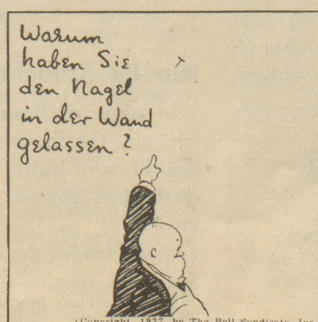 Warum
haben Sie
den Nagel
in der Wand
gelassen?
by The Bell Syndicate, Inc.